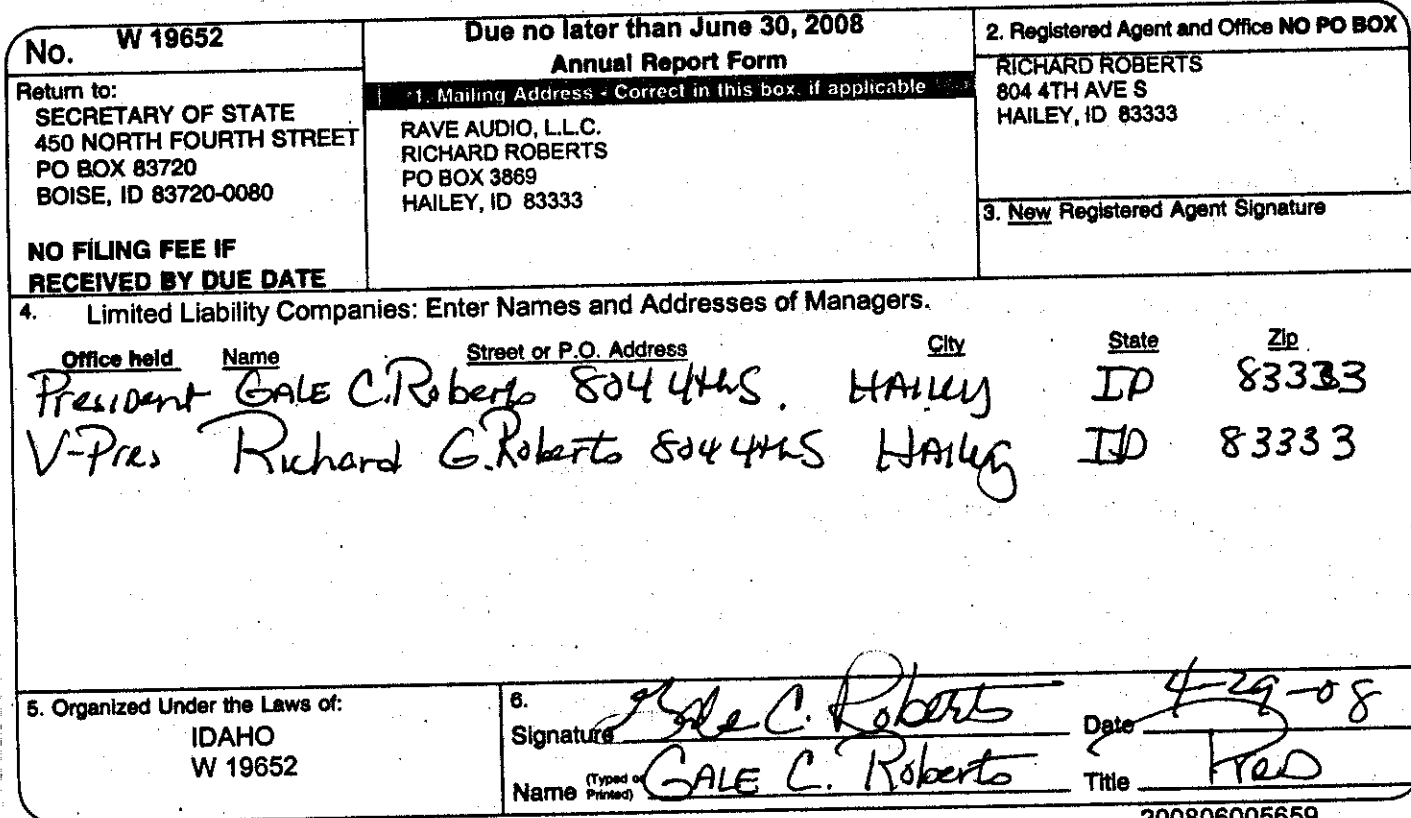 No. W 19652
Return to:
SECRETARY OF STATE
450 NORTH FOURTH STREET
PO BOX 83720
BOISE, ID 83720-0080
NO FILING FEE IF
RECEIVED BY DUE DATE
Due no later than June 30, 2008
Annual Report Form
1. Mailing Address - Correct in this box, if applicable
RAVE AUDIO, L.L.C.
RICHARD ROBERTS
PO BOX 3869
HAILEY, ID 83333
2. Registered Agent and Office NO PO BOX
RICHARD ROBERTS
804 4TH AVE S
HAILEY, ID 83333
3. New Registered Agent Signature
4. Limited Liability Companies: Enter Names and Addresses of Managers.
Office held Name Street or P.O. Address City State Zip
President GALE C. Roberts 804 4th S. HAILEY ID 83333
V-Pres Richard G. Roberts 804 4th S HAILEY ID 83333
5. Organized Under the Laws of:
IDAHO
W 19652
6.
Signature Gale C. Roberts Date 4-29-08
Name (Typed or Printed) GALE C. Roberts Title Pres
200806005659